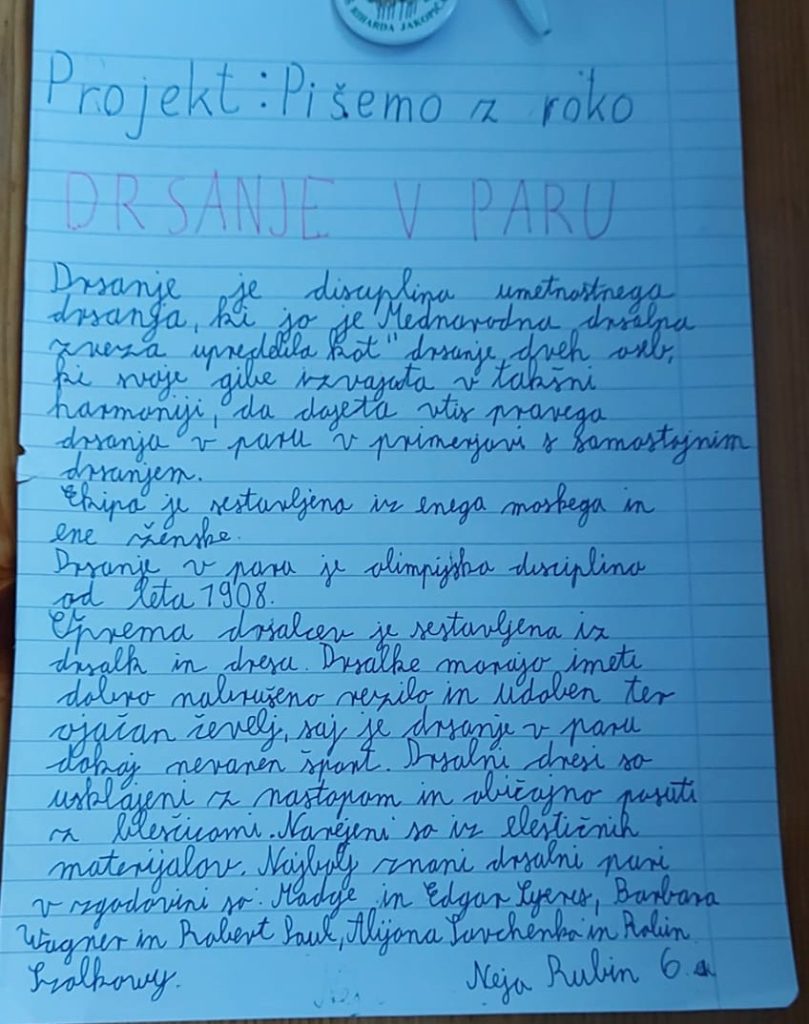 RIHARDA JAKOPIČ
Projekt: Pišemo z roko
DRSANJE V PARU
Drsanje je disciplina umetnostnega
drsanja, ki jo je Mednarodna drsalna
zveza opredelila kot" drsanje dveh oseb,
ki svoje gibe izvajata v takšni
harmoniji, da dajeta vtis pravega
drsanja v paru v primerjavi s samostojnim
drsanjem.
Ekipa je sestavljena iz enega moškega in
ene ženske.
Drsanje v paru je olimpijska disciplina
od leta 1908.
Oprema drsalcev je sestavljena iz
drsalk in dresa. Drsalke morajo imeti
dobro nabrušeno rezilo in udoben ter
ojačan čevelj, saj je drsanje v paru
dokaj nevaren šport. Drsalni dresi so
usklajeni z nastopom in običajno posuti
z bleščicami. Narejeni so iz elestičnih
materijalov. Najbolj znani drsalni pari
v zgodovini so: Madge in Edgar Syeres, Barbara
Wagner in Robert Paul, Alijona Savchenko in Robin
Szolkowy.
Neja Rubin 6. a